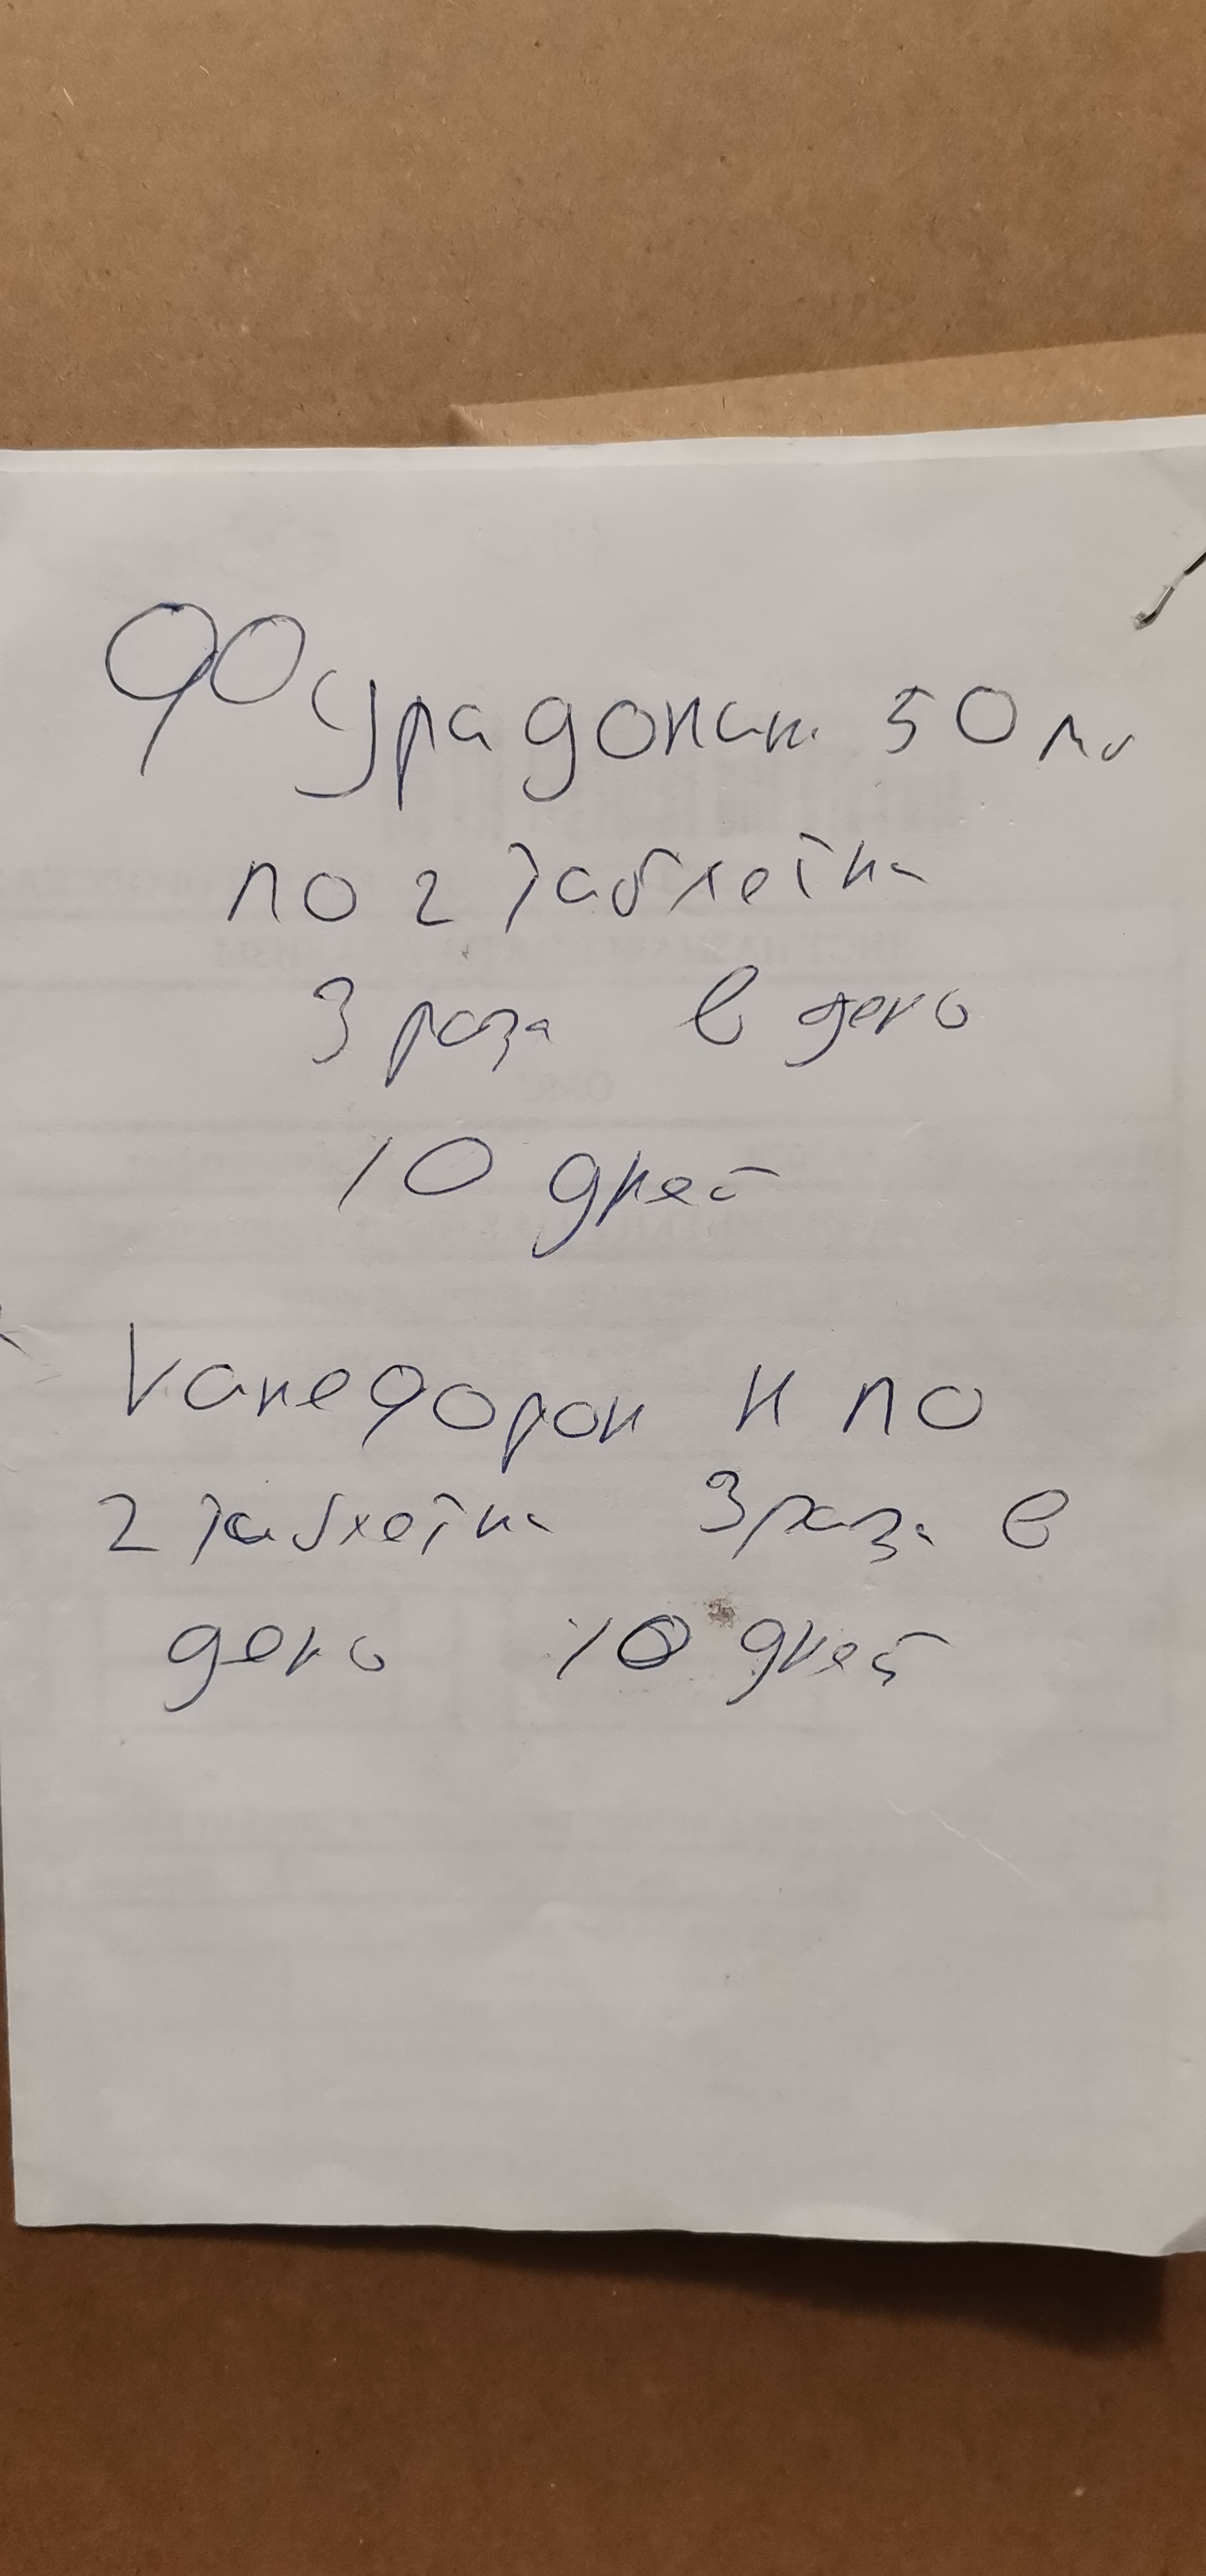 Фурадонин 50 мг
по 2 таблетки
3 раза в день
10 дней
Канефрон Н по
2 таблетки 3 раза в
день 10 дней